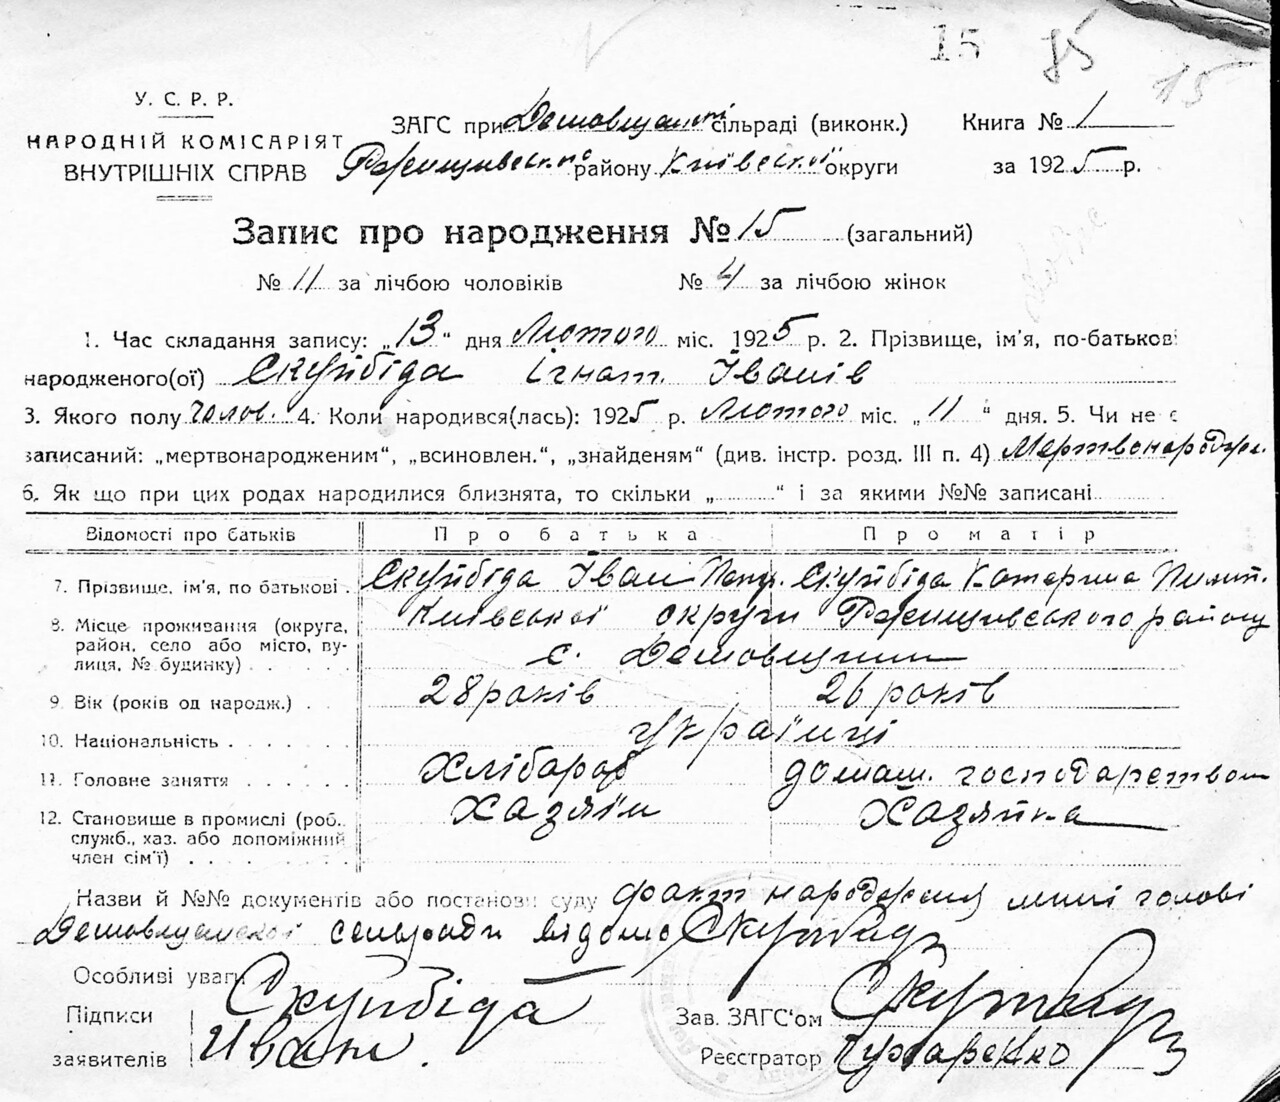 15 85 15
У. С. Р. Р.
НАРОДНІЙ КОМІСАРІЯТ
ВНУТРІШНІХ СПРАВ
ЗАГС при сільраді (виконк.) Книга № 1
Ржищівського району Київської округи за 1925 р.
Запис про народження № 15 (загальний)
№ 11 за лічбою чоловіків № 4 за лічбою жінок
1. Час складання запису: „13“ дня Лютого міс. 1925 р. 2. Прізвище, ім'я, по-батькові
народженого(ої) Скуйбіда Ігнат Іванів
3. Якого полу чолов. 4. Коли народився(лась): 1925 р. Лютого міс. „11“ дня. 5. Чи не є
записаний: „мертвонародженим“, „всиновлен.“, „знайденям“ (див. інстр. розд. III п. 4) Мертвонародже.
6. Як що при цих родах народилися близнята, то скільки „ “ і за якими №№ записані
Відомості про батьків Про батька Про матір
7. Прізвище, ім'я, по батькові . Скуйбіда Іван Скуйбіда Катерина
8. Місце проживання (округа, Київської округи Ржищівського району
район, село або місто, ву-
лиця, № будинку) . . . . . с.
9. Вік (років од народж.) . . 28 років 26 років
10. Національність . . . . . . . Українці
11. Головне заняття . . . . . . Хлібороб домаш. господарством
12. Становище в промислі (роб., Хазяїн Хазяйка
служб., хаз. або допоміжний
член сім'ї) . . . . . . . .
Назви й №№ документів або постанови суду факт народження мині голові
сельради відомо
Особливі уваги
Підписи Скуйбіда Зав. ЗАГС'ом
заявителів Иван. Реєстратор